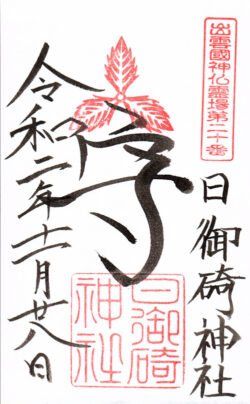 出雲國神仏霊場第二十番
日御碕神社
日御碕
神社
令和二年十一月廿八日